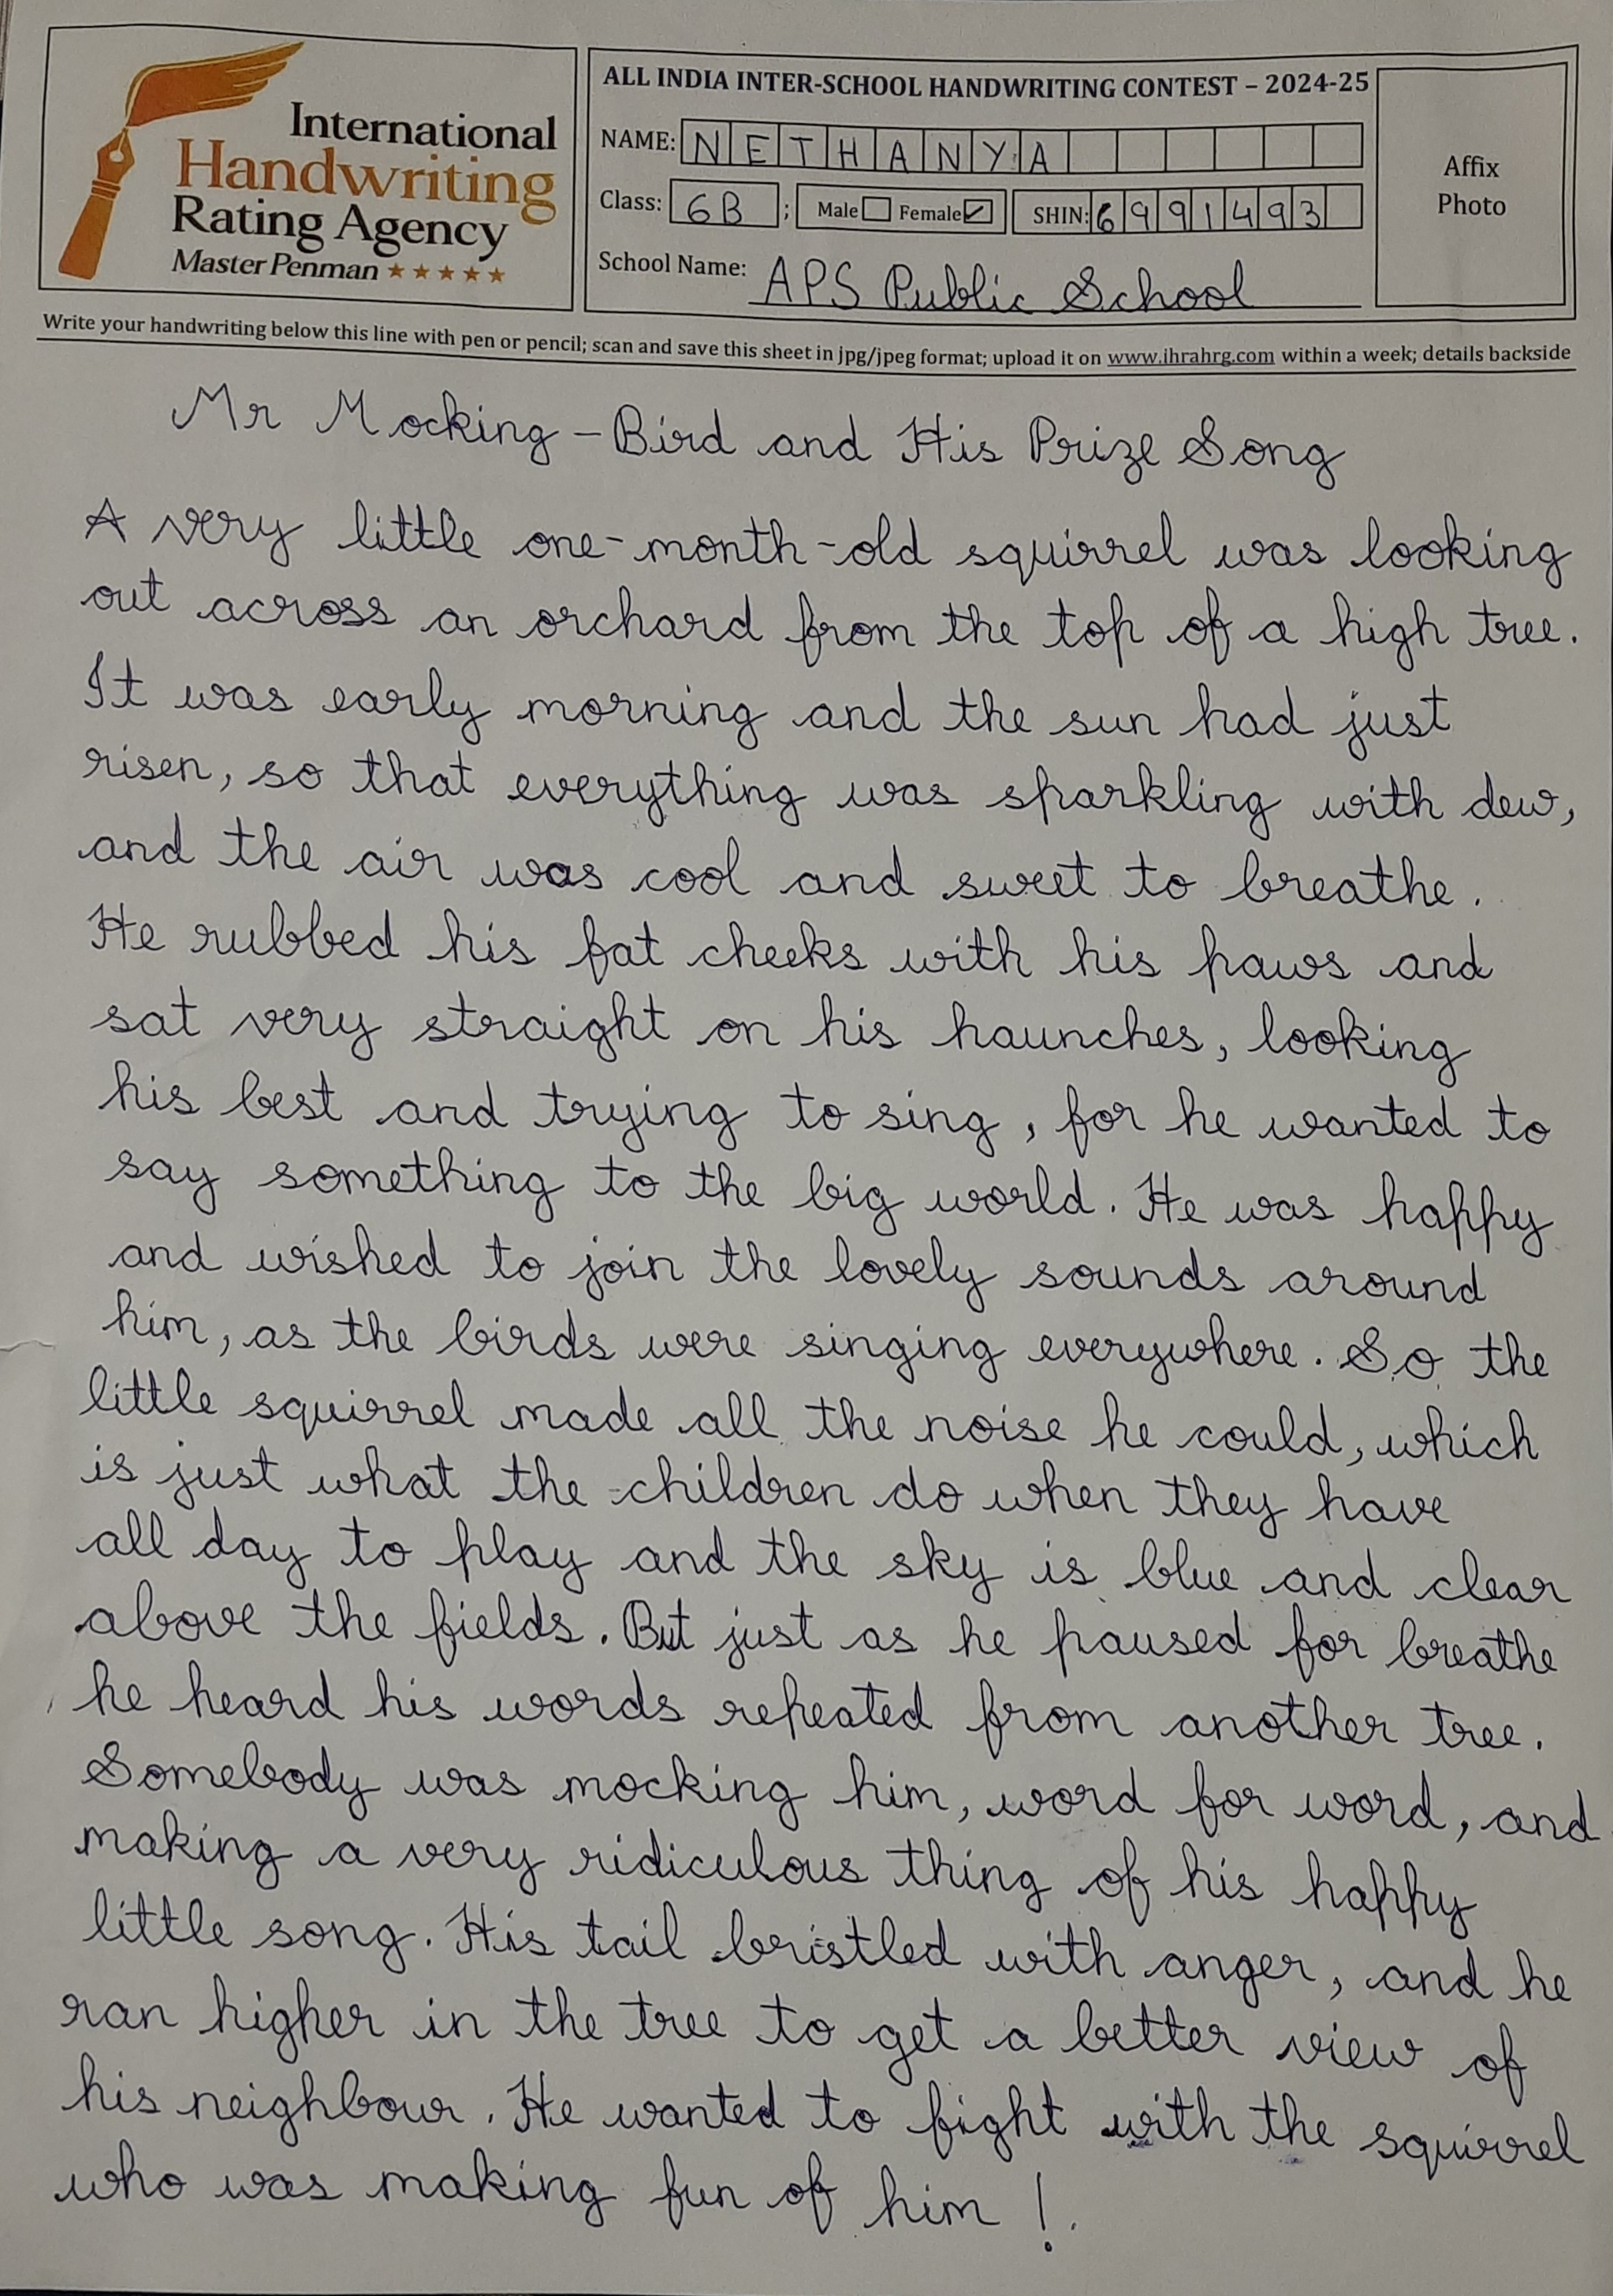 International
Handwriting
Rating Agency
Master Penman ★★★★★
ALL INDIA INTER-SCHOOL HANDWRITING CONTEST – 2024-25
NAME: NETHANYA
Class: 6B ; Male Female SHIN: 6991493
School Name: APS Public School
Affix
Photo
Write your handwriting below this line with pen or pencil; scan and save this sheet in jpg/jpeg format; upload it on www.ihrahrg.com within a week; details backside
Mr Mocking-Bird and His Prize Song
A very little one-month-old squirrel was looking
out across an orchard from the top of a high tree.
It was early morning and the sun had just
risen, so that everything was sparkling with dew,
and the air was cool and sweet to breathe.
He rubbed his fat cheeks with his paws and
sat very straight on his haunches, looking
his best and trying to sing, for he wanted to
say something to the big world. He was happy
and wished to join the lovely sounds around
him, as the birds were singing everywhere. So the
little squirrel made all the noise he could, which
is just what the children do when they have
all day to play and the sky is blue and clear
above the fields. But just as he paused for breathe
he heard his words repeated from another tree.
Somebody was mocking him, word for word, and
making a very ridiculous thing of his happy
little song. His tail bristled with anger, and he
ran higher in the tree to get a better view of
his neighbour. He wanted to fight with the squirrel
who was making fun of him!